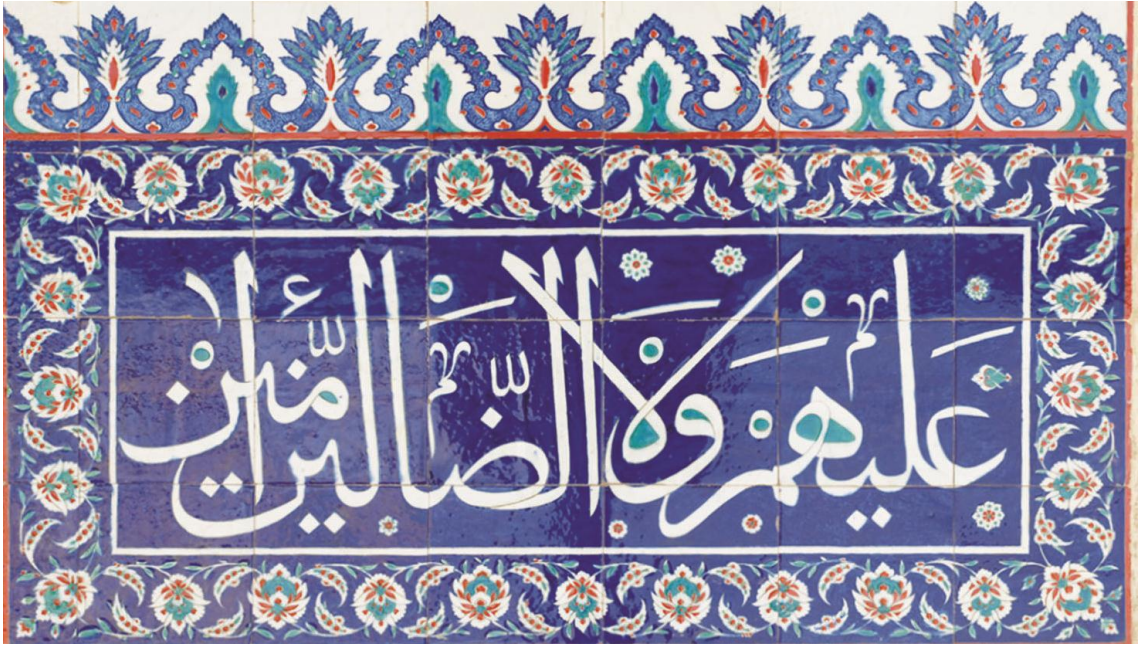 عَلَيْهِمْ وَلَا الضَّالِّينَ آمِّين